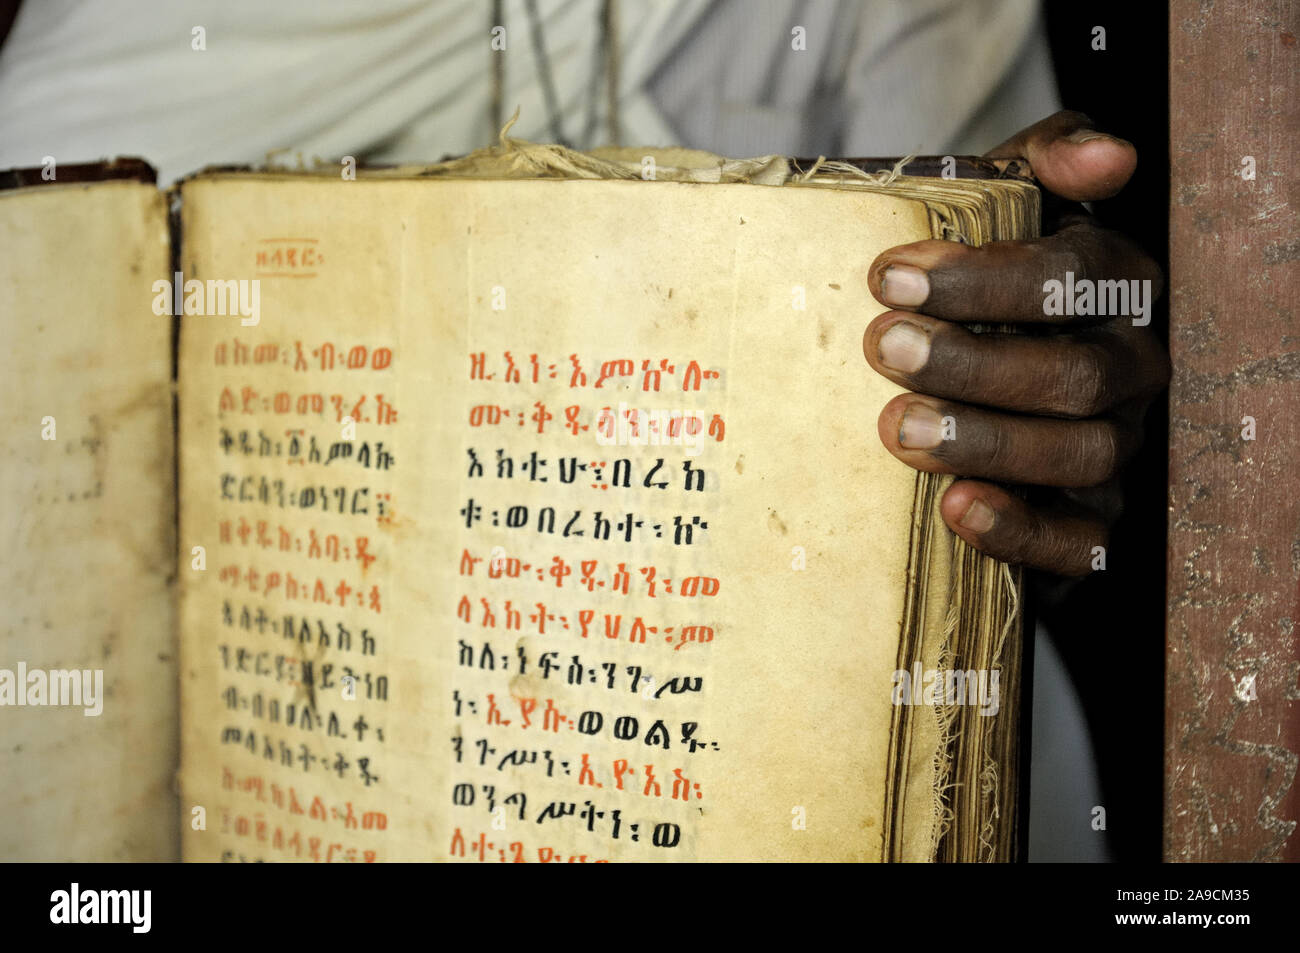 ዘኅዳር፡
በስመ፡አብ፡ወወ
ልድ፡ወመንፈስ
ቅዱስ፡፩አምላክ
ድርሳን፡ወነገር፤
ዘቅዱስ፡አባ፡ዱ
ማቴዎስ፡ሊቀ፡ጳ
ጳሳት፡ዘለእስክ
ንድርያ፤ዘይትነበ
ብ፡በበዓለ፡ሊቀ፡
መላእክት፡ቅዱ
ስ፡ሚካኤል፡አመ
፲ወ፪ለኅዳር፡
ዚእነ፡እምኵሎ
ሙ፡ቅዱሳን፡መላ
እክቲሁ፤በረከ
ቱ፡ወበረከተ፡ኵ
ሎሙ፡ቅዱሳን፡መ
ላእክት፡የሀሉ፡ም
ስለ፡ነፍስ፡ንጉሥ
ነ፡ኢያሱ፡ወወልዱ፡
ንጉሥነ፡ኢዮአስ፡
ወንግሥትነ፡ወ
ለተ፡
alamy
Image ID: 2A9CM35
www.alamy.com